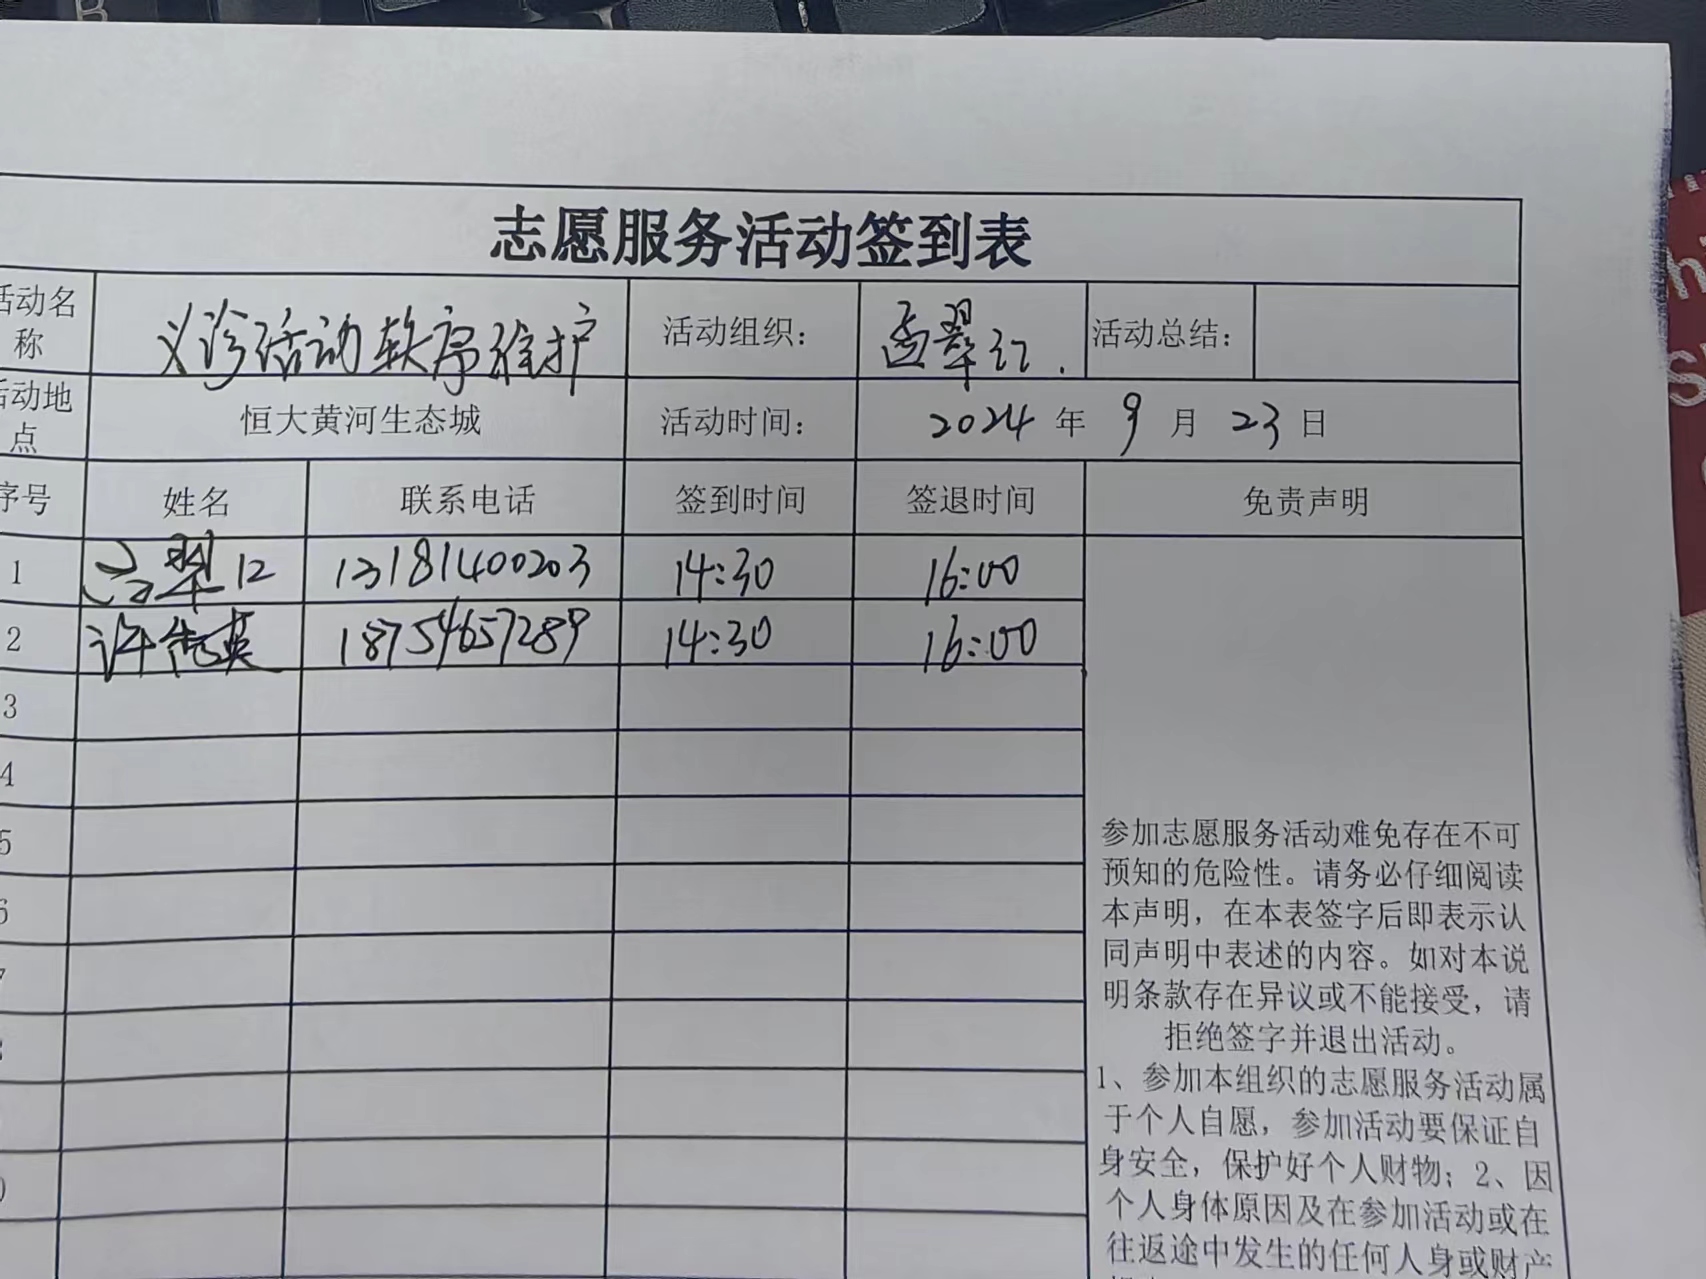 志愿服务活动签到表
活动名称 义诊活动秩序维护 活动组织： 孟翠红. 活动总结：
活动地点 恒大黄河生态城 活动时间： 2024 年 9 月 23 日
序号 姓名 联系电话 签到时间 签退时间 免责声明
1 孟翠红 13181400203 14:30 16:00
2 许 英 18754657289 14:30 16:00
3
4
5
6
参加志愿服务活动难免存在不可
预知的危险性。请务必仔细阅读
本声明，在本表签字后即表示认
同声明中表述的内容。如对本说
明条款存在异议或不能接受，请
拒绝签字并退出活动。
1、参加本组织的志愿服务活动属
于个人自愿，参加活动要保证自
身安全，保护好个人财物；2、因
个人身体原因及在参加活动或在
往返途中发生的任何人身或财产